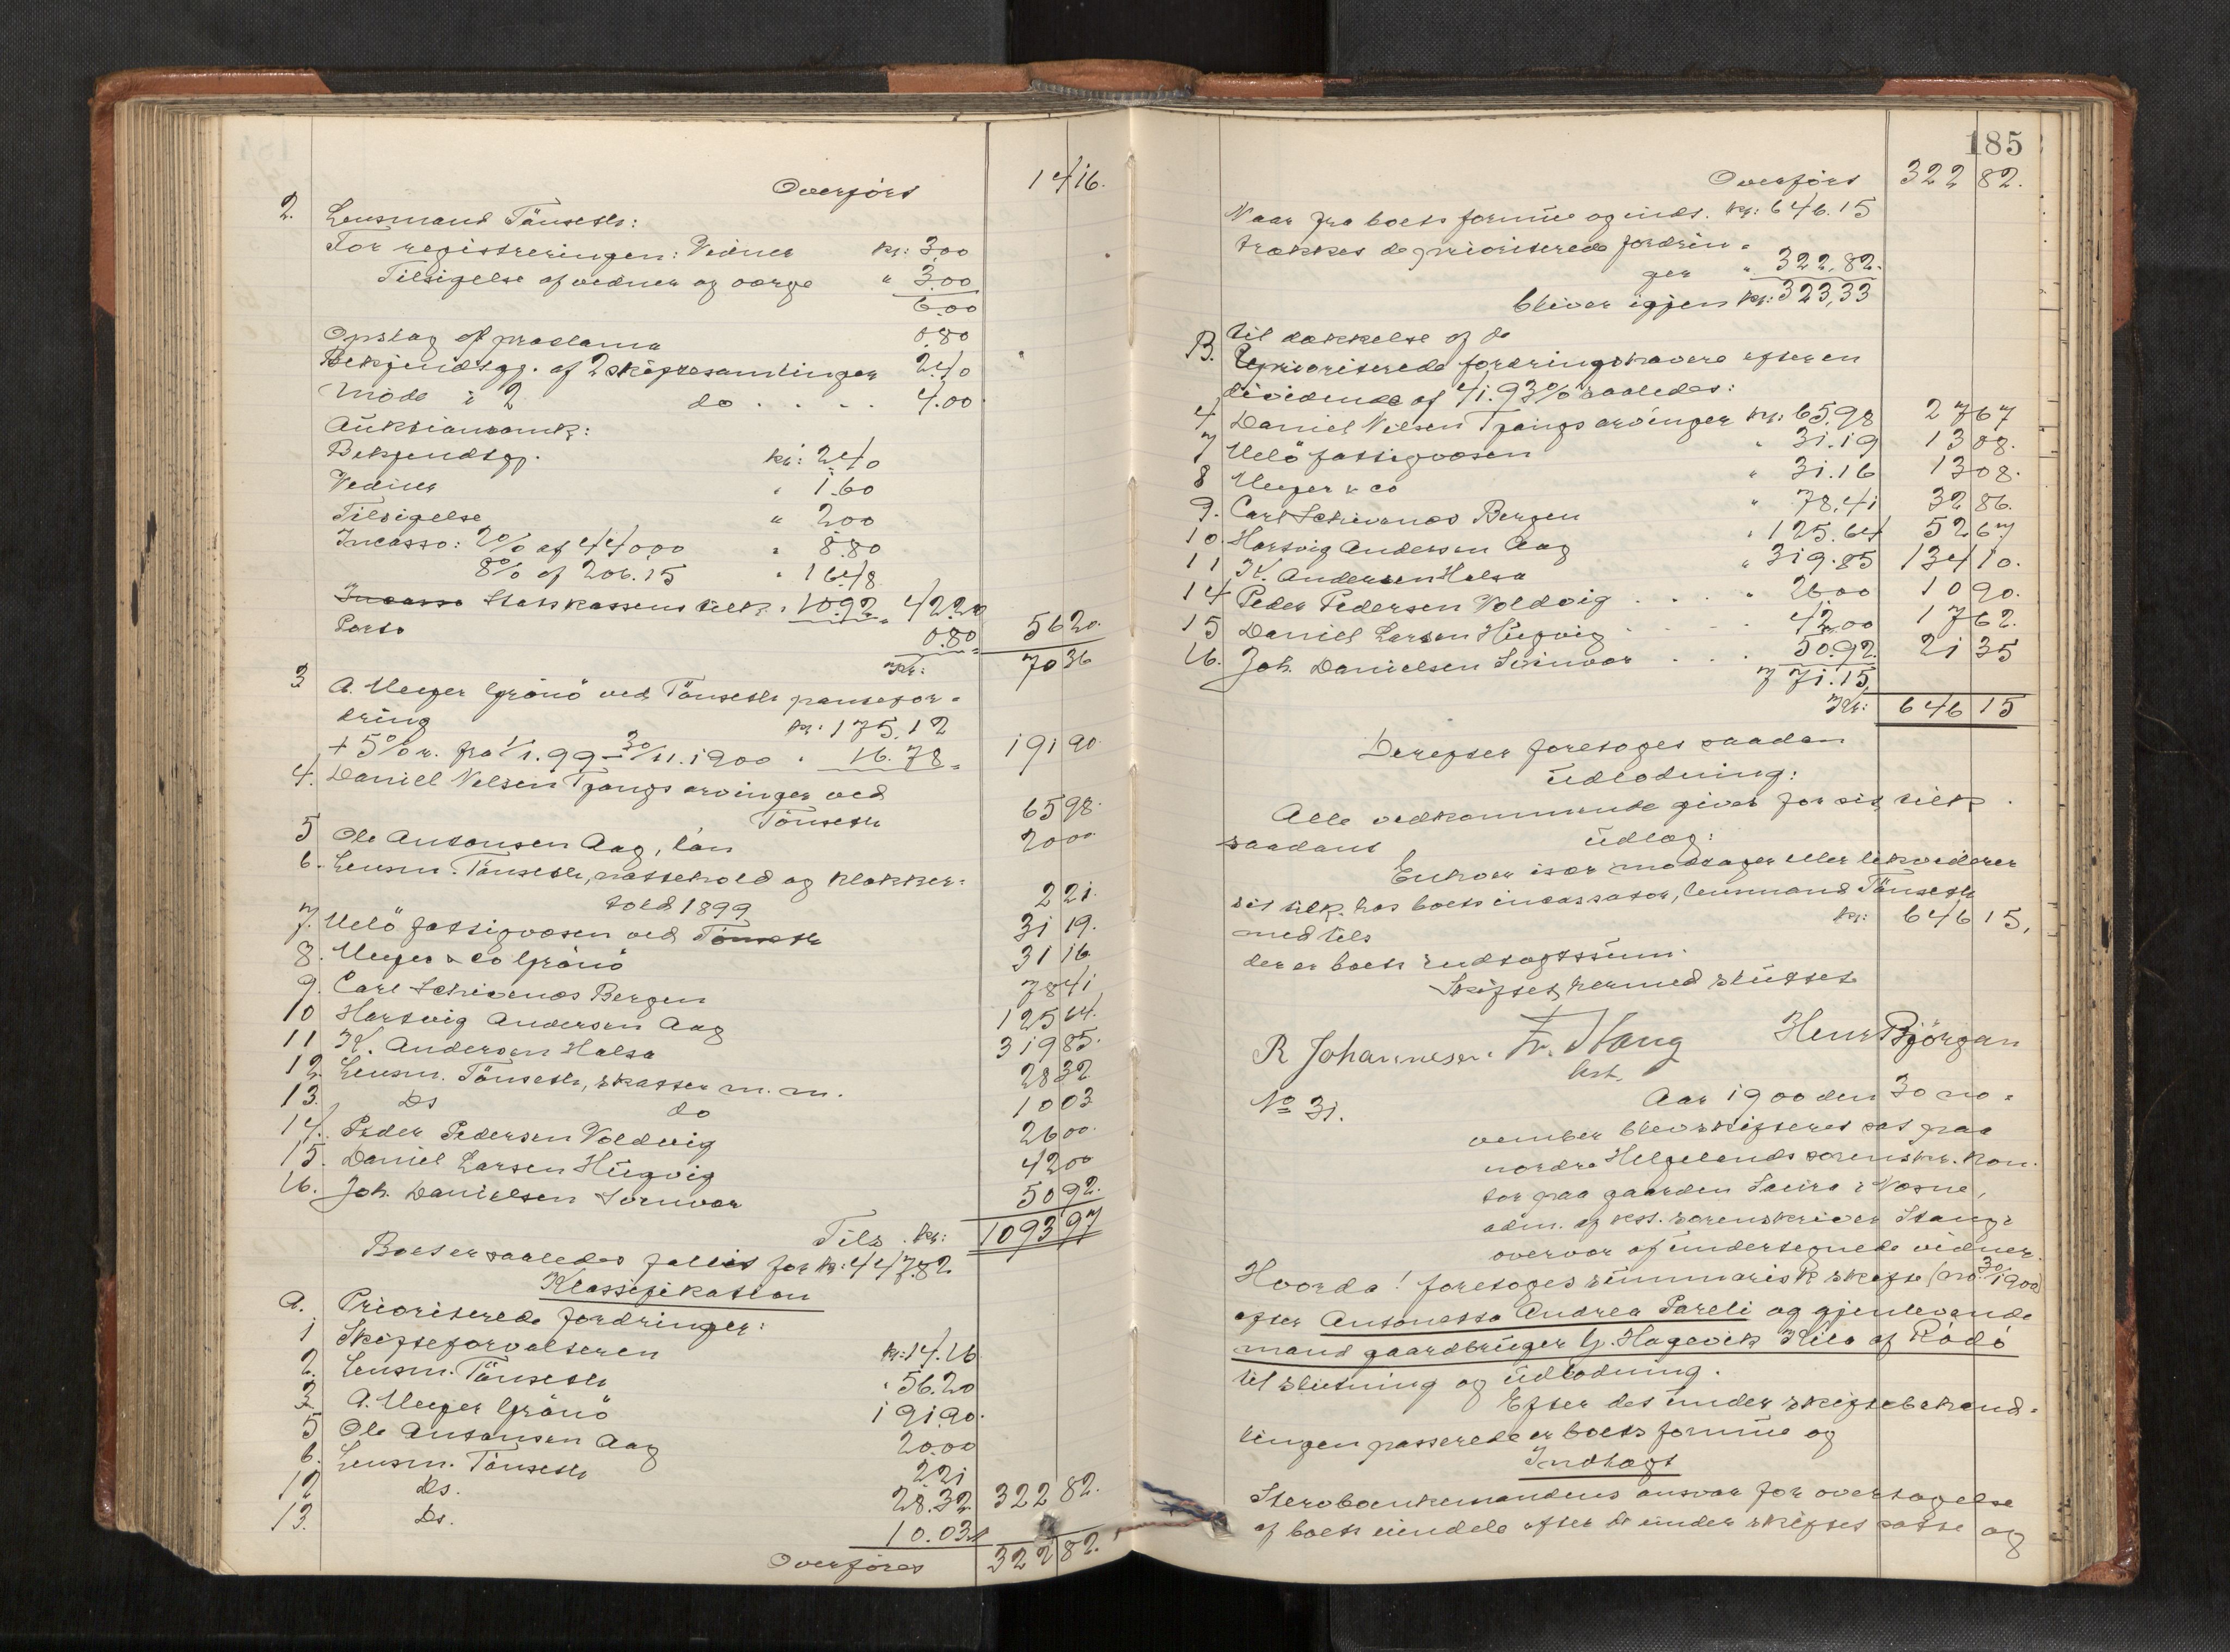 Overført 14 16.
2. Lensmand Tönseth:
For registreringen: Vidner kr: 3,00
Tilsigelse af vidner og værge " 3.00
6.00
Opslag af proclama 0.80
Bekjendtgj. af 2 skiftesamlinger 2.40
Møde i 2 do . . . . 4.00
Auktionsomk:
Bekjendtgj. kr: 2.40
Vidner " 1.60
Tilsigelse " 2.00
Incasso: 2% af 440.00 " 8.80
8% af 206.15 " 16.48
Incasso Statskassens tilk. " 10.92 42.20
Porto 0.80 56 20.
Kr: 70 36
3 A. Meyer Grönö ved Tönseth pantefor-
dring kr: 175.12
+ 5% r. fra 1/1.99 - 30/11.1900 " 16.78 191 90.
4. Daniel Nilsen Tjongs arvinger ved
Tönseth 65 98.
5 Ole Antonsen Aag, lön 20 00
6. Lensm. Tönseth, nattehold og klokker-
told 1899 2 21.
7. Melö fattigvæsen ved Tönseth 31 19.
8. Meyer & Co Grönö 31 16.
9. Carl Schivenes Bergen 78 41
10 Hartvig Andersen Aag 125 64.
11 K. Andersen Halsa 319 85.
12. Lensm. Tönseth, skatter m. m. 28 32
13. Ds do 10 03
14. Peder Pedersen Voldvig 26 00.
15. Daniel Larsen Hugvig 42 00
16. Joh. Danielsen Sörnvær 50 92.
Tils. kr: 1093 97
Boet er saaledes fallit for kr: 447.82
Klassifikation
A. Prioriterede fordringer:
1 Skifteforvalteren kr: 14.16
2. Lensm. Tönseth " 56.20
3 A. Meyer Grönö 191.90.
5 Ole Antonsen Aag 20.00
6. Lensm. Tönseth 2.21
12 Ds. 28.32 322 82.
13. Ds. 10.03
Overføres 322 82.
185
Overført 322 82.
Naar fra boets formue og indt. kr: 646.15
trækkes de prioriterede fordrin-
ger " 322.82.
bliver igjen kr: 323,33
til dækkelse af de
B. Uprioriterede fordringshavere efter en
dividende af 41.93% saaledes:
4 Daniel Nilsen Tjongs arvinger kr: 65.98 27 67
7 Melö fattigvæsen " 31.19 13 08.
8 Meyer & Co " 31.16 13 08.
9. Carl Schivenes Bergen " 78.41 32 86.
10. Hartvig Andersen Aag " 125.64 52 67
11 K. Andersen Halsa " 319.85 134 10.
14 Peder Pedersen Voldvig . . . " 26.00 10 90.
15 Daniel Larsen Hugvig . . . . 42.00 17 62.
16. Joh. Danielsen Sörnvær . . . 50.92. 21 35
771.15
Kr: 646 15
Derefter foretoges saadan
udlodning:
Alle vedkommende gives for sit tilk.
saadant udlæg:
Enhver især modtager eller likviderer
sit tilk. hos boets incassator, lensmand Tönseth
med tils kr: 646 15,
der er boets indtægtssum.
Skiftet hermed sluttet
R Johannesen. Fr. Stang Henr Bjørgan
kst.
No 31. Aar 1900 den 30 no-
vember blev skifteret sat paa
nordre Helgelands sorenskr. kon-
tor paa gaarden Saura i Næsne,
adm. af kst. sorenskriver Stang i
overvær af undertegnede vidner.
Hvorda! foretoges summarisk skifte (no 30/1900)
efter Antonette Andrea Pareli og gjenlevende
mand gaardbruger G. Hagevik Kila af Rödö
til slutning og udlodning.
Efter det under skiftebehand-
lingen passerede er boets formue og
Indtægt
Stervboenkemandens ansvar for overtagelse
af boets eiendele efter de under skiftet satte og